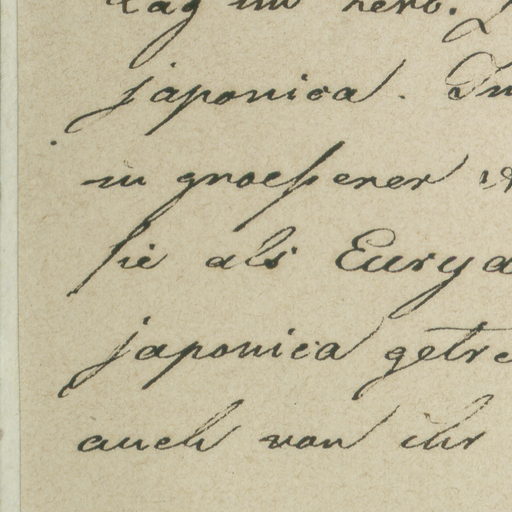 lag im herb.
japonica. Im
in groeßerer
sie als Eurya
japonica getre
auch von ihr